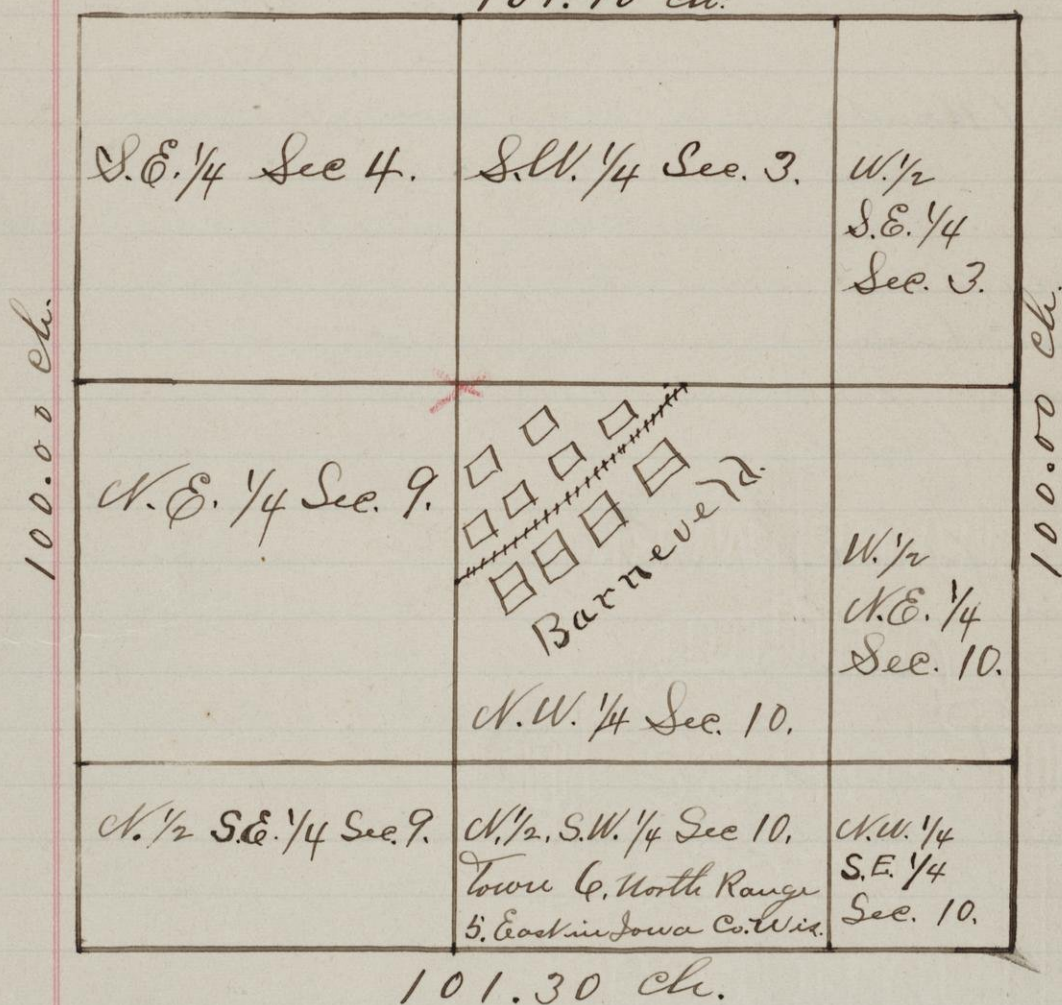 S.E. 1/4 Sec 4.
S.W. 1/4 Sec. 3.
W. 1/2
S.E. 1/4
Sec. 3.
100.00 ch.
100.00 ch.
N.E. 1/4 Sec. 9.
Barneveld.
N.W. 1/4 Sec. 10.
W. 1/2
N.E. 1/4
Sec. 10.
N. 1/2 S.E. 1/4 Sec. 9.
N. 1/2, S.W. 1/4 Sec 10.
Town 6, North Range
5. East in Iowa Co. Wis.
N.W. 1/4
S.E. 1/4
Sec. 10.
101.30 ch.